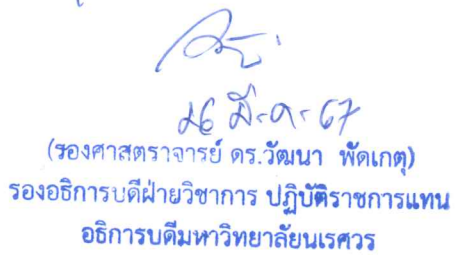 26 มี.ค. 67
(รองศาสตราจารย์ ดร.วัฒนา พัดเกตุ)
รองอธิการบดีฝ่ายวิชาการ ปฏิบัติราชการแทน
อธิการบดีมหาวิทยาลัยนเรศวร